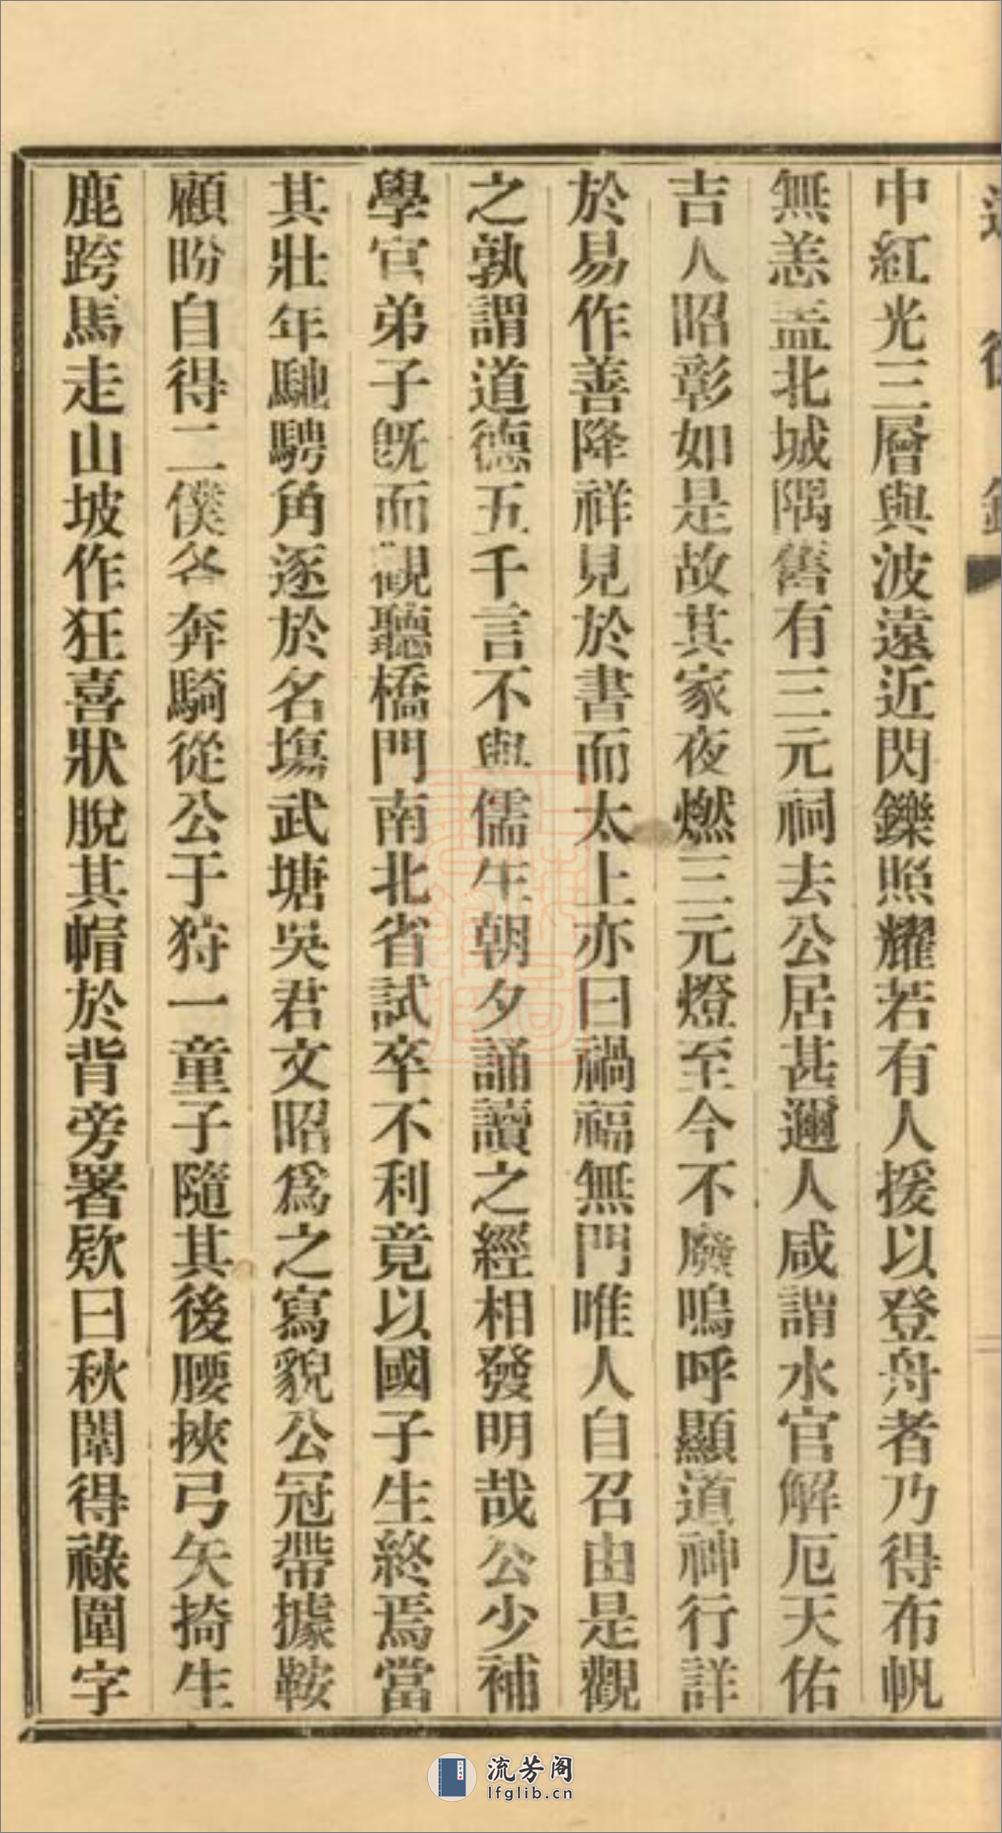 中紅光三層與波遠近閃鑠照耀若有人援以登舟者乃得布帆
無恙盖北城隅舊有三元祠去公居甚邇人咸謂水官解厄天佑
吉人昭彰如是故其家夜燃三元燈至今不廢嗚呼顯道神行詳
於易作善降祥見於書而太上亦曰禍福無門唯人自召由是觀
之孰謂道德五千言不與儒生朝夕誦讀之經相發明哉公少補
學官弟子旣而觀聽橋門南北省試卒不利竟以國子生終焉當
其壯年馳騁角逐於名塲武塘吳君文昭爲之寫貌公冠帶據鞍
顧盼自得二僕各奔騎從公于狩一童子隨其後腰挾弓矢掎生
鹿跨馬走山坡作狂喜狀脫其帽於背旁署欵曰秋闈得祿圍字
流芳阁
lfglib.cn